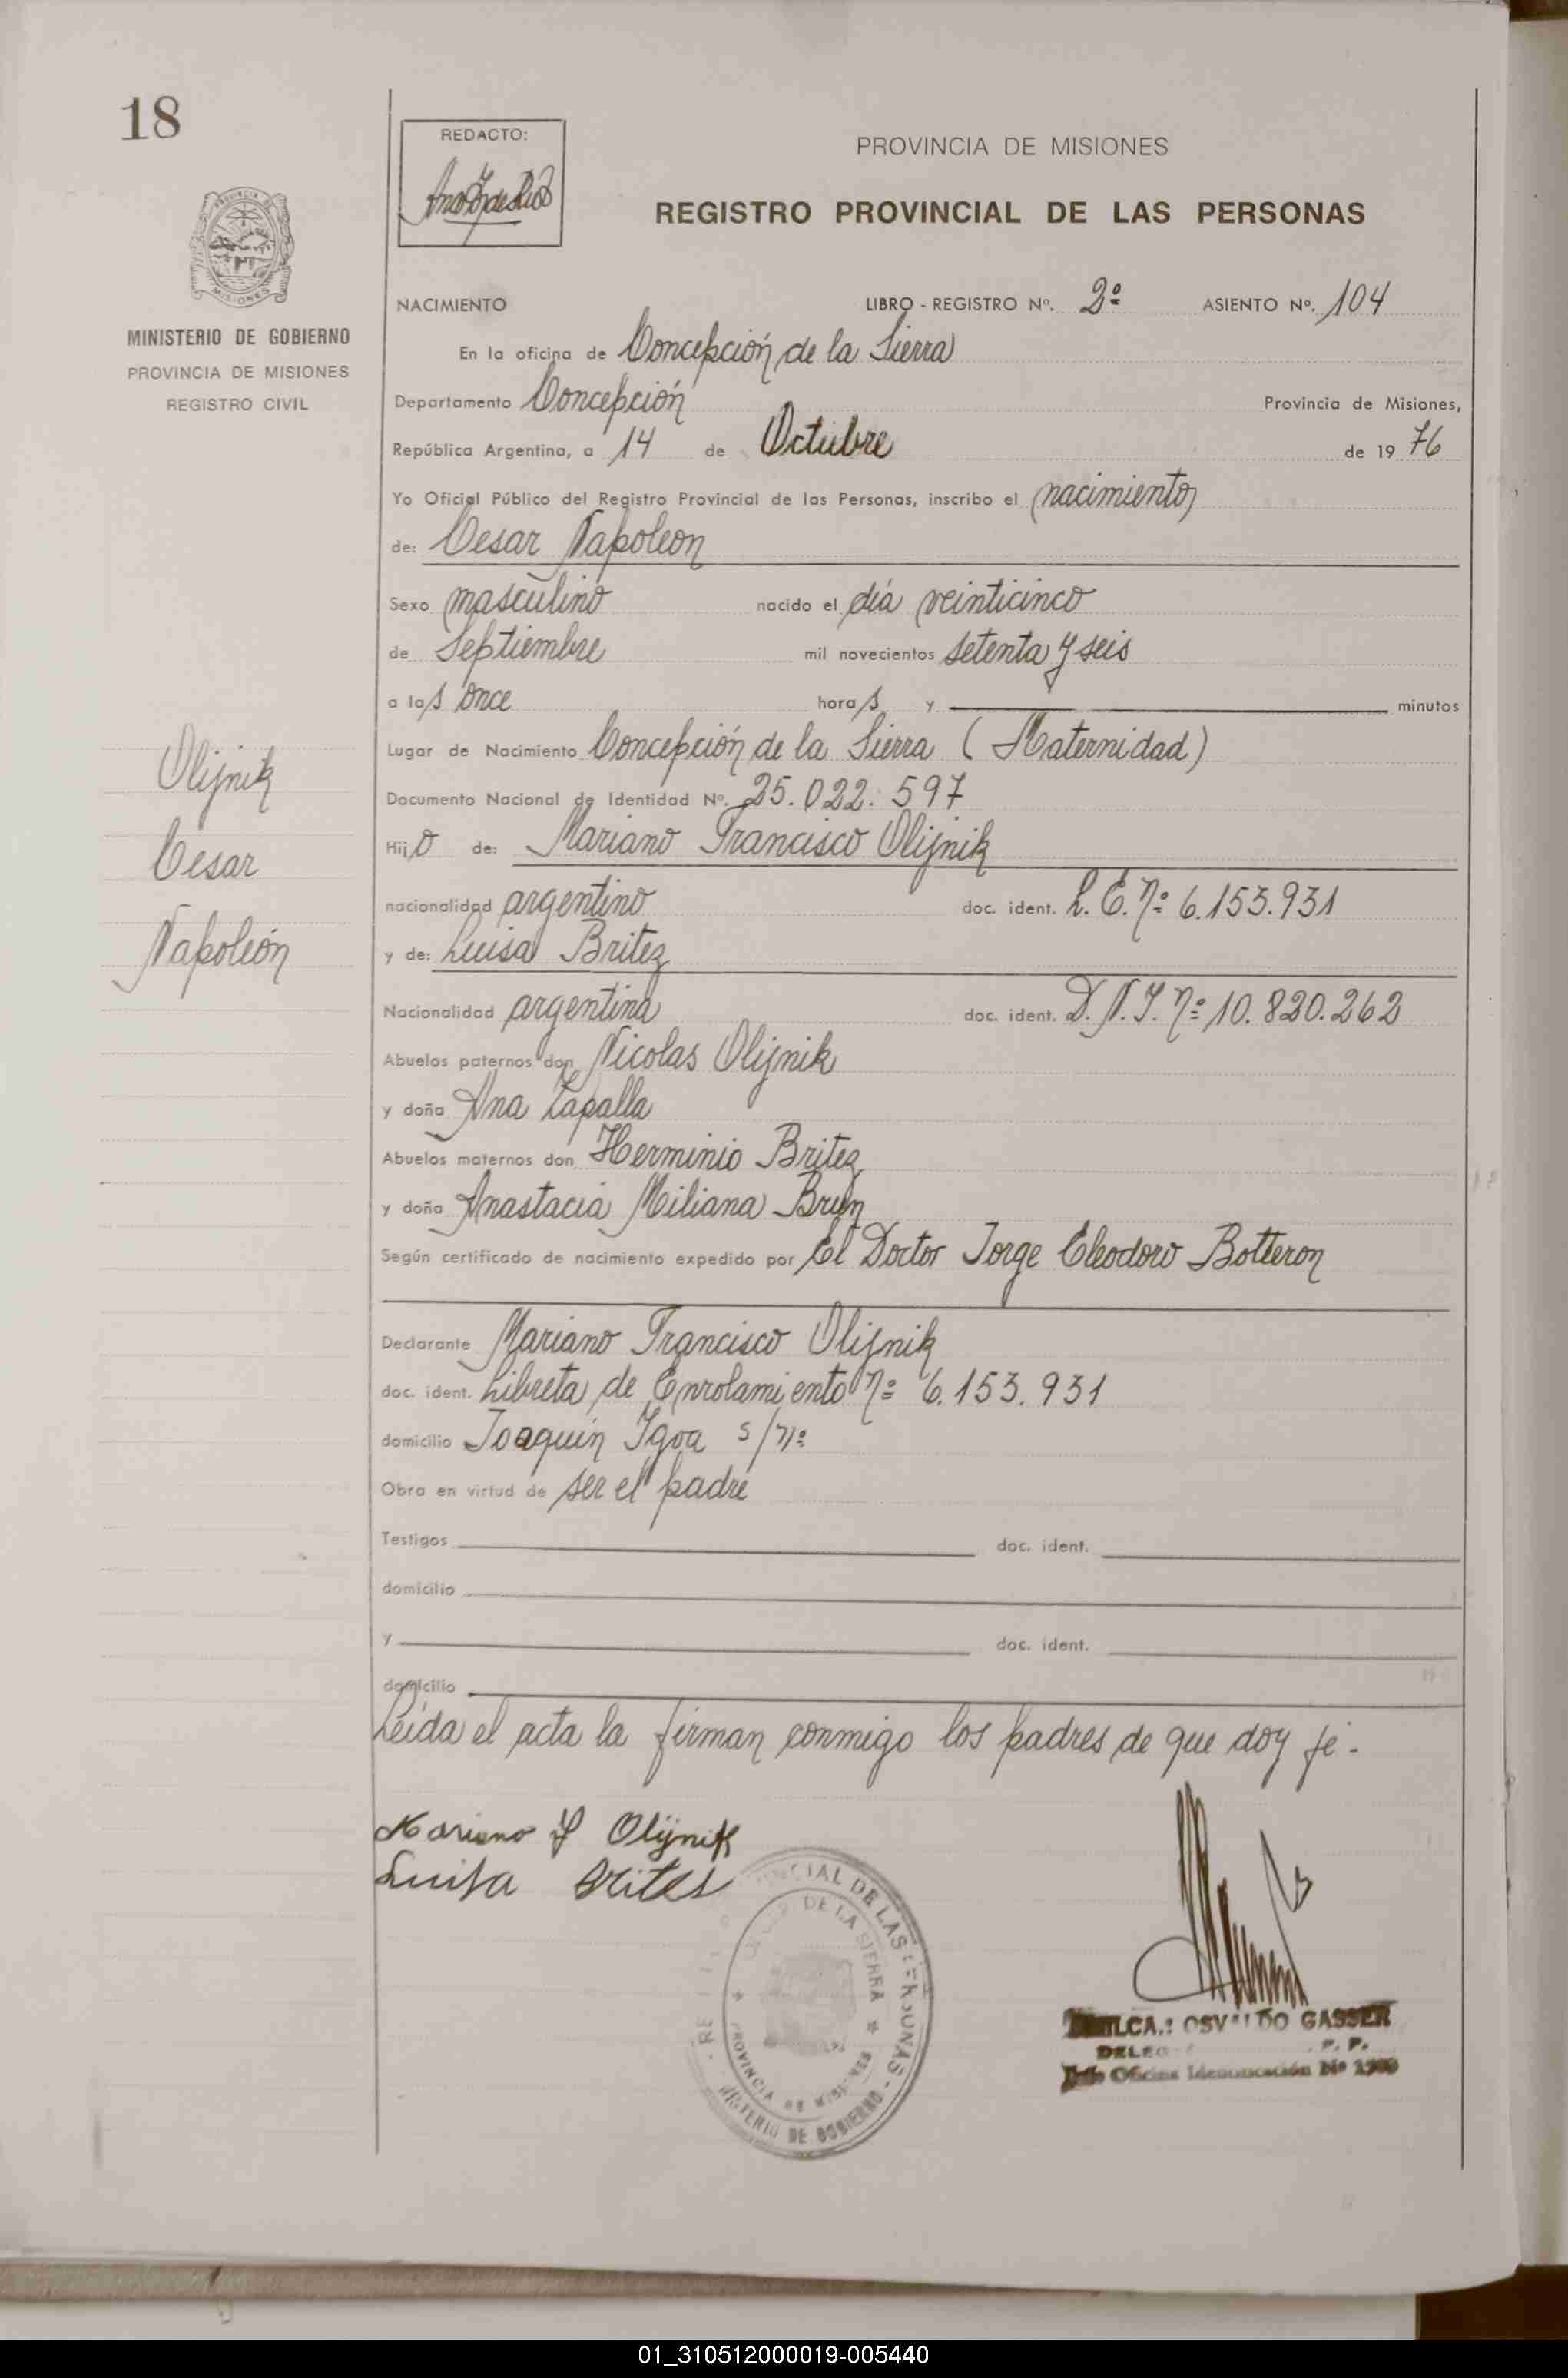 18
REDACTO:
PROVINCIA DE MISIONES
REGISTRO PROVINCIAL DE LAS PERSONAS
MINISTERIO DE GOBIERNO
PROVINCIA DE MISIONES
REGISTRO CIVIL
NACIMIENTO LIBRO - REGISTRO Nº. 2º ASIENTO Nº. 104
En la oficina de Concepción de la Sierra
Departamento Concepción Provincia de Misiones,
República Argentina, a 14 de Octubre de 1976
Yo Oficial Público del Registro Provincial de las Personas, inscribo el nacimiento
de: Cesar Napoleon
Sexo masculino nacido el día veinticinco
de Septiembre mil novecientos setenta y seis
a las once horas y minutos
Lugar de Nacimiento Concepción de la Sierra (Maternidad)
Documento Nacional de Identidad Nº. 25.022.597
Hijo de: Mariano Francisco Olijnik
nacionalidad argentino doc. ident. L.E. nº 6.153.931
y de: Luisa Britez
Nacionalidad argentina doc. ident. D.N.I. nº 10.820.262
Abuelos paternos don Nicolas Olijnik
y doña Ana Zapalla
Abuelos maternos don Herminio Britez
y doña Anastacia Miliana Brun
Según certificado de nacimiento expedido por El Doctor Jorge Eleodoro Botteron
Declarante Mariano Francisco Olijnik
doc. ident. Libreta de Enrolamiento nº 6.153.931
domicilio Joaquín Igoa s/nº
Obra en virtud de ser el padre
Testigos doc. ident.
domicilio
y doc. ident.
domicilio
Leída el acta la firman conmigo los padres de que doy fé.-
Olijnik
Cesar
Napoleón
Mariano F Olijnik
Luisa Brites
OSVALDO GASSER
DE LA SIERRA
PROVINCIA DE MISIONES
01_310512000019-005440